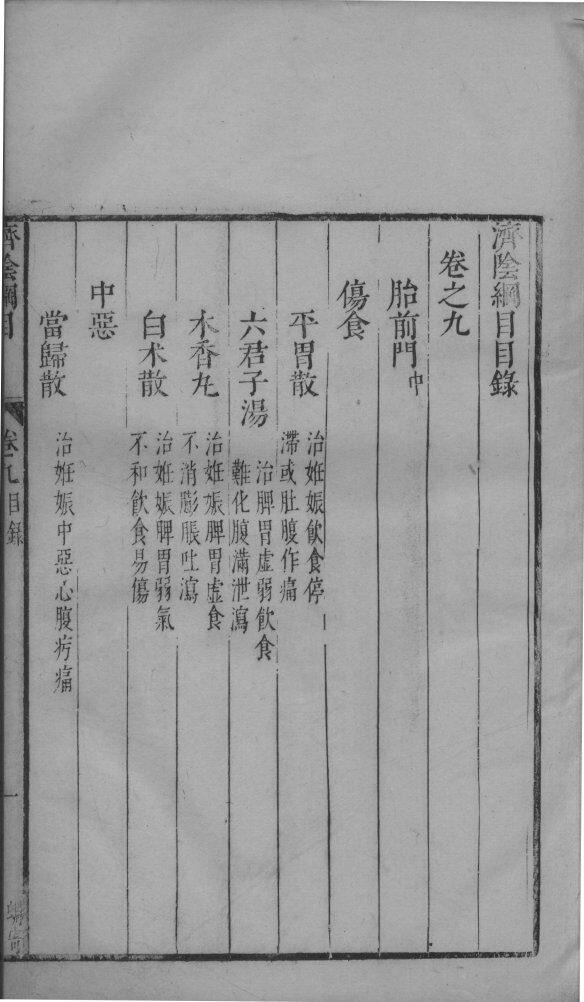 濟陰綱目目錄
卷之九
胎前門中
傷食
平胃散 治姙娠飲食停
滯或肚腹作痛
六君子湯 治脾胃虛弱飲食
難化腹滿泄瀉
木香丸 治姙娠脾胃虛食
不消膨脹吐瀉
白朮散 治姙娠脾胃弱氣
不和飲食易傷
中惡
當歸散 治姙娠中惡心腹㽲痛
濟陰綱目 卷九目錄 一